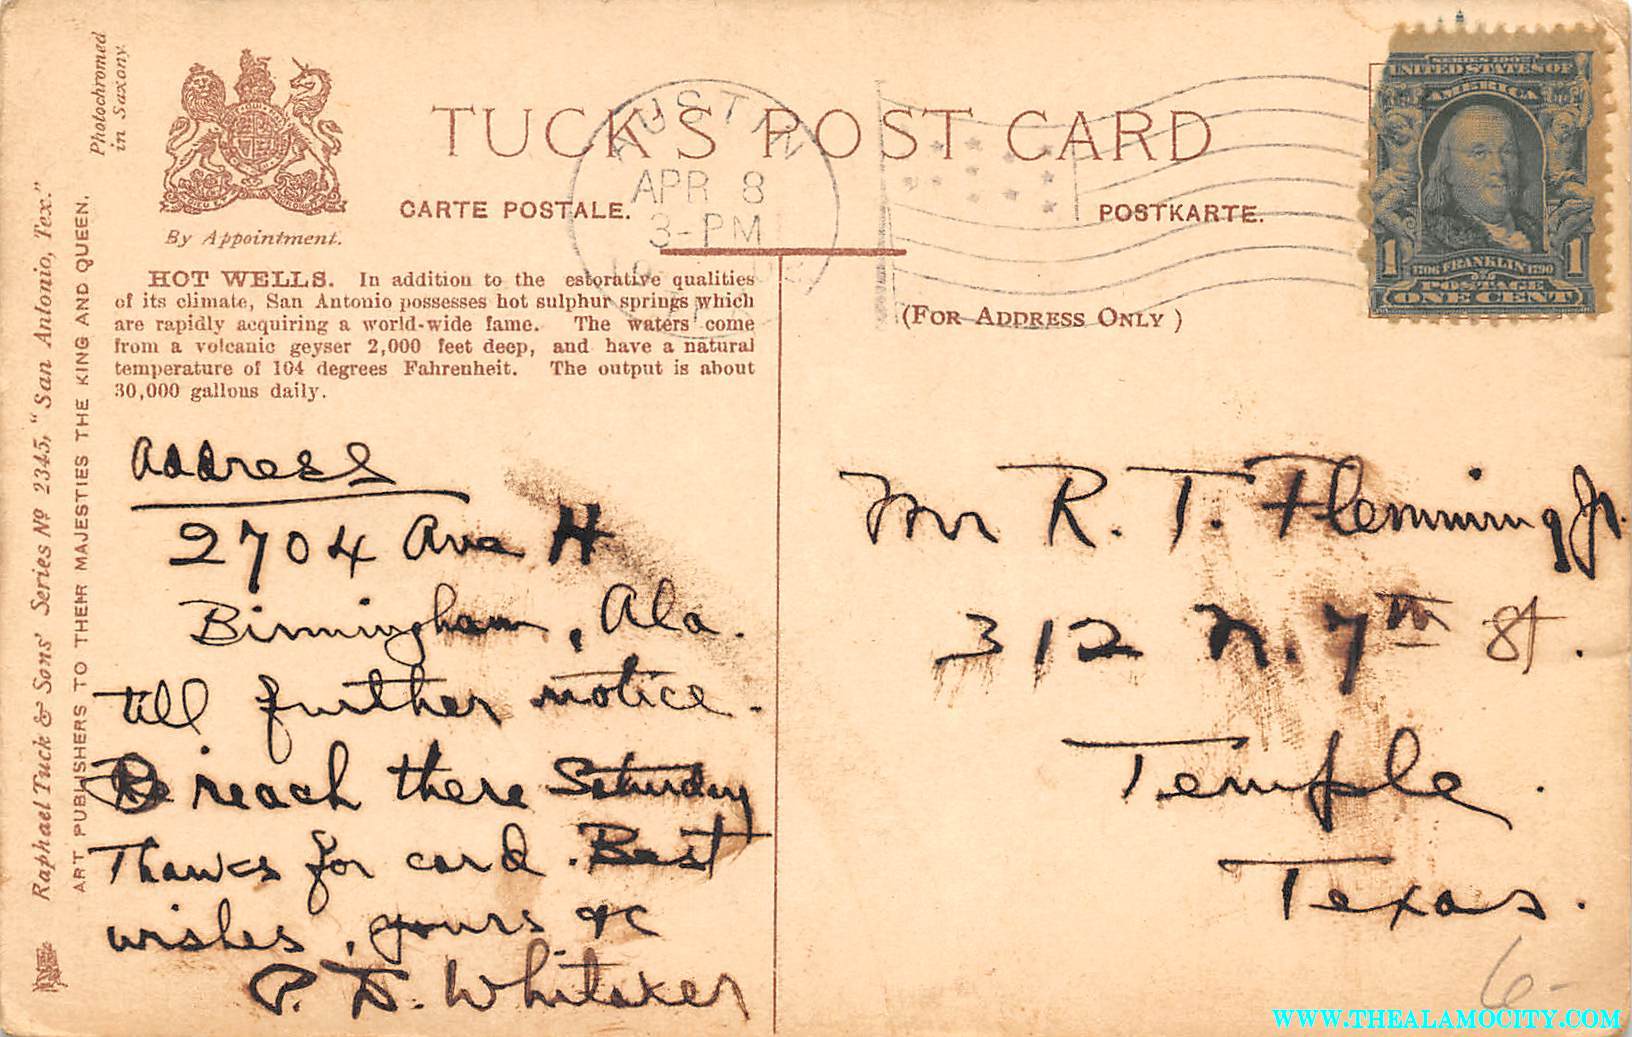 Photochromed
in Saxony.
By Appointment.
TUCK'S POST CARD
CARTE POSTALE.
POSTKARTE.
AUSTIN
APR 8
3-PM
(FOR ADDRESS ONLY)
SERIES 1902
UNITED STATES OF
AMERICA
1 1
1706 FRANKLIN 1790
POSTAGE
ONE CENT
HOT WELLS. In addition to the estorative qualities
of its climate, San Antonio possesses hot sulphur springs which
are rapidly acquiring a world-wide fame. The waters come
from a volcanic geyser 2,000 feet deep, and have a natural
temperature of 104 degrees Fahrenheit. The output is about
30,000 gallons daily.
Raphael Tuck & Sons' Series Nº 2345, "San Antonio, Tex."
ART PUBLISHERS TO THEIR MAJESTIES THE KING AND QUEEN.
Address
2704 Ave H
Birmingham, Ala.
till further notice.
reach there Saturday
Thanks for card. Best
wishes, yours &c
P. D. Whitaker
Mr R. T. Flemming Jr.
312 N. 7th St.
Temple.
Texas.
6-
WWW.THEALAMOCITY.COM